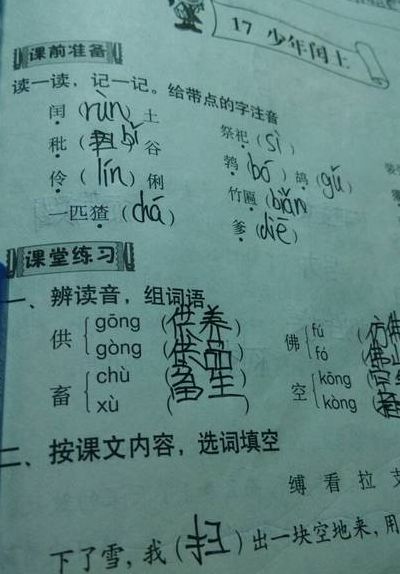 17 少年闰土
课前准备
读一读，记一记。给带点的字注音
闰（rùn）土 祭祀（sì）
秕（bǐ）谷 鹁（bó）鸪（gū）
伶（lín）俐 竹匾（biǎn）
一匹猹（chá） 爹（diē）
课堂练习
一、辨读音，组词语
供 gōng（供养） 佛 fú（仿佛
gòng（供品） fó（佛山
畜 chù（畜生） 空 kōng（空
xù（ ） kòng（
二、按课文内容，选词填空
缚 看 拉 支
下了雪，我（扫）出一块空地来，用